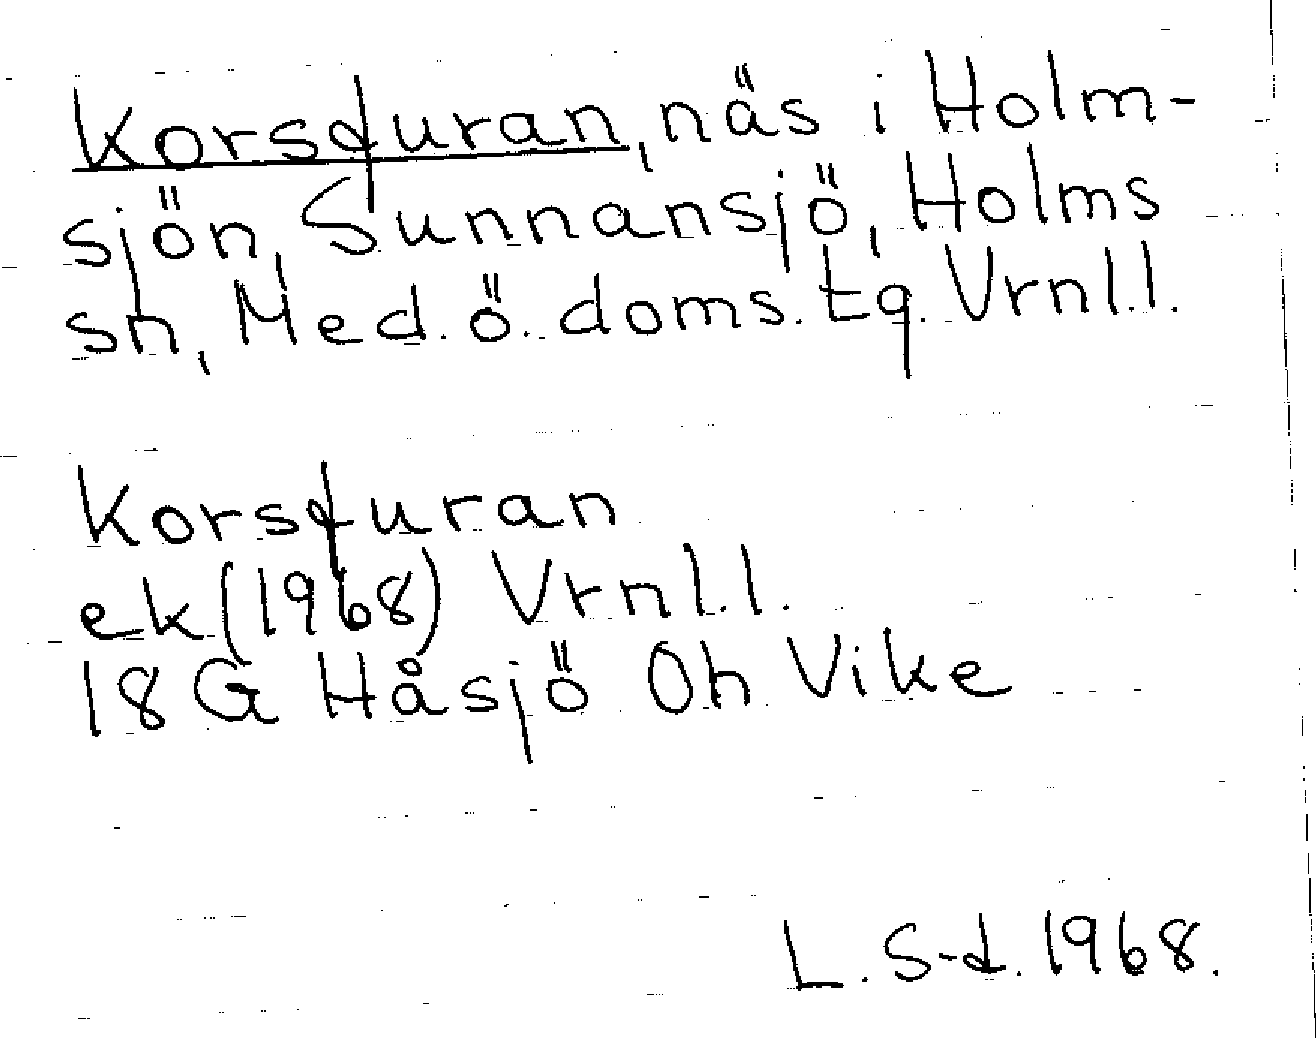 Korsfuran, näs i Holm-
sjön, Sunnansjö, Holms
sn, Med. ö. doms. tg. Vrnl.l.
Korsfuran
ek (1968) Vrnl.l.
18 G Håsjö Oh Vike
L. S-d. 1968.